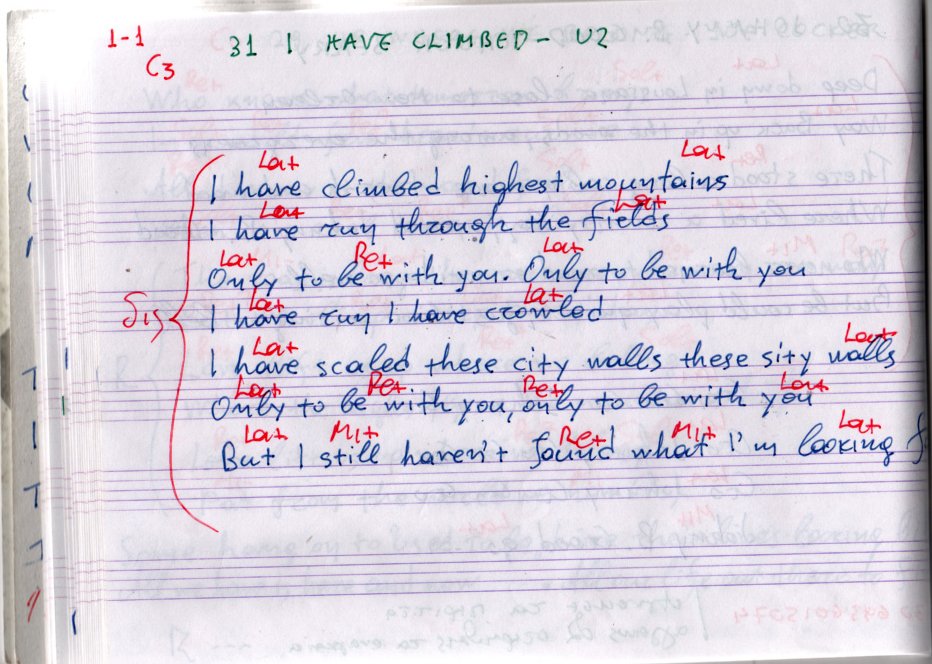 1-1
C3
31 I HAVE CLIMBED - U2
La+ La+
I have climbed highest mountains
La+ La+
I have run through the fields
La+ Re+ La+
Only to be with you. Only to be with you
La+ La+
I have run I have crowled
La+ La+
I have scaled these city walls these sity walls
La+ Re+ Re+ La+
Only to be with you, only to be with you
La+ Mi+ Re+ Mi+ La+
But I still haven't found what I'm looking f